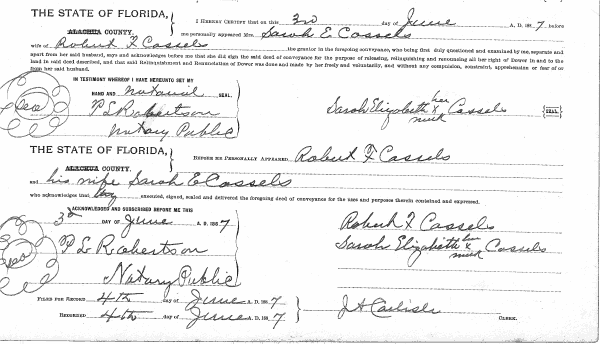 THE STATE OF FLORIDA,
ALACHUA COUNTY.
I HEREBY CERTIFY that on this 3rd day of June A. D. 1887 before
me personally appeared Mrs. Sarah E Cassels
wife of Robert F Cassels the grantor in the foregoing conveyance, who being first duly questioned and examined by me, separate and
apart from her said husband, says and acknowledges before me that she did sign the said deed of conveyance for the purpose of releasing, relinquishing and renouncing all her right of Dower in and to the
land in said deed described, and that said Relinquishment and Renunciation of Dower was done and made by her freely and voluntarily, and without any compulsion, constraint, apprehension or fear of or
from her said husband.
IN TESTIMONY WHEREOF I HAVE HEREUNTO SET MY
HAND AND notarial SEAL.
P L Robertson
Notary Public
Sarah Elizabeth her x mark Cassels SEAL
THE STATE OF FLORIDA,
ALACHUA COUNTY.
BEFORE ME PERSONALLY APPEARED Robert F Cassels
and his wife Sarah E Cassels
who acknowledges that they executed, signed, sealed and delivered the foregoing deed of conveyance for the uses and purposes therein contained and expressed.
ACKNOWLEDGED AND SUBSCRIBED BEFORE ME THIS
3d DAY OF June A. D. 1887
P L Robertson
Notary Public
Robert F Cassels
Sarah Elizabeth her x mark Cassels
FILED FOR RECORD 4th day of June 1887
RECORDED 4th day of June A. D. 1887
J A Carlisle CLERK.